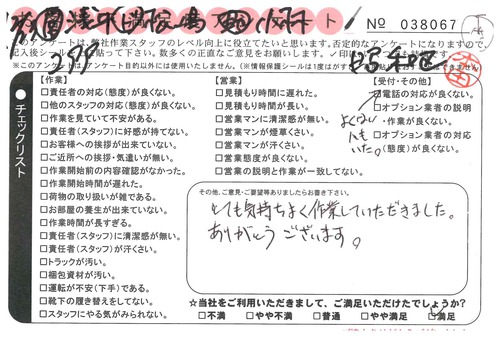 ト
№ 038067
このアンケートは、弊社作業スタッフのレベル向上に役立てたいと思います。否定的なアンケートになりますので、
記入後シールを貼って下さい。数多くの正直なご意見をお願いします。
※このアンケートはアンケート目的以外には使用いたしません。
チェックリスト
【作業】
□責任者の対応(態度)が良くない。
□他のスタッフの対応(態度)が良くない。
□作業を見ていて不安がある。
□責任者(スタッフ)に好感が持てない。
□お客様への挨拶が出来ていない。
□ご近所への挨拶・気遣いが無い。
□作業開始前の内容確認がなかった。
□作業開始時間が遅れた。
□荷物の取り扱いが雑である。
□お部屋の養生が出来ていない。
□作業時間が長すぎる。
□責任者(スタッフ)に清潔感が無い。
□責任者(スタッフ)が汗くさい。
□トラックが汚い。
□梱包資材が汚い。
□運転が不安(下手)である。
□靴下の履き替えをしてない。
□スタッフにやる気がみられない。
【営業】
□見積もり時間に遅れた。
□見積もり時間が長い。
□営業マンに清潔感が無い。
□営業マンが煙草くさい。
□営業マンが汗くさい。
□営業態度が良くない。
□営業の説明と作業が一致してない。
【受付・その他】
□電話の対応が良くない。
□オプション業者の説明
・作業が良くない。
□オプション業者の対応
(態度)が良くない。
よくない
人も
いた。
その他、ご意見・ご要望等ありましたらお書き下さい。
とても気持ちよく作業していただきました。
ありがとうございます。
☆当社をご利用いただきまして、ご満足いただけたでしょうか?
□不満 □やや不満 □普通 □やや満足 □満足